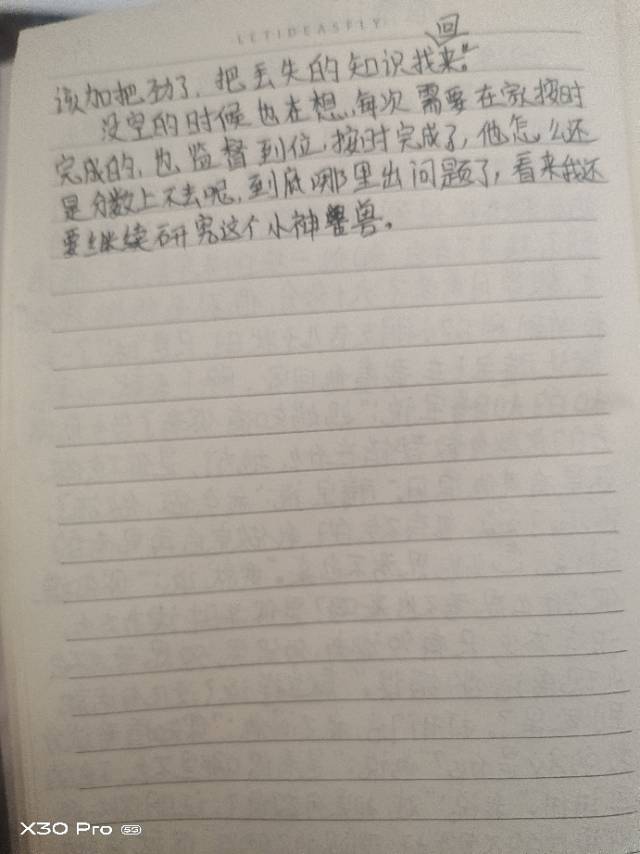 LETIDEASFLY
该加把劲了，把丢失的知识找回来。"
没空的时候也在想，每次需要在家按时
完成的，也监督到位，按时完成了，他怎么还
是分数上不去呢，到底哪里出问题了，看来我还
要继续研究这个小神兽。
X30 Pro 5G